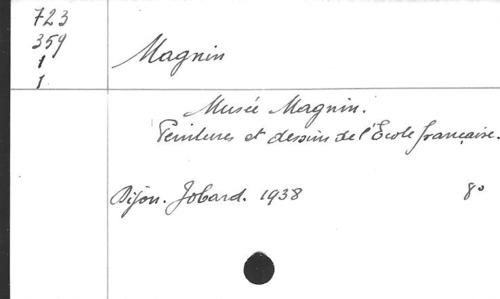 723
359
1
1
Magnin
Musée Magnin.
Peintures et dessins de l'École française.
Dijon. Jobard. 1938 8°